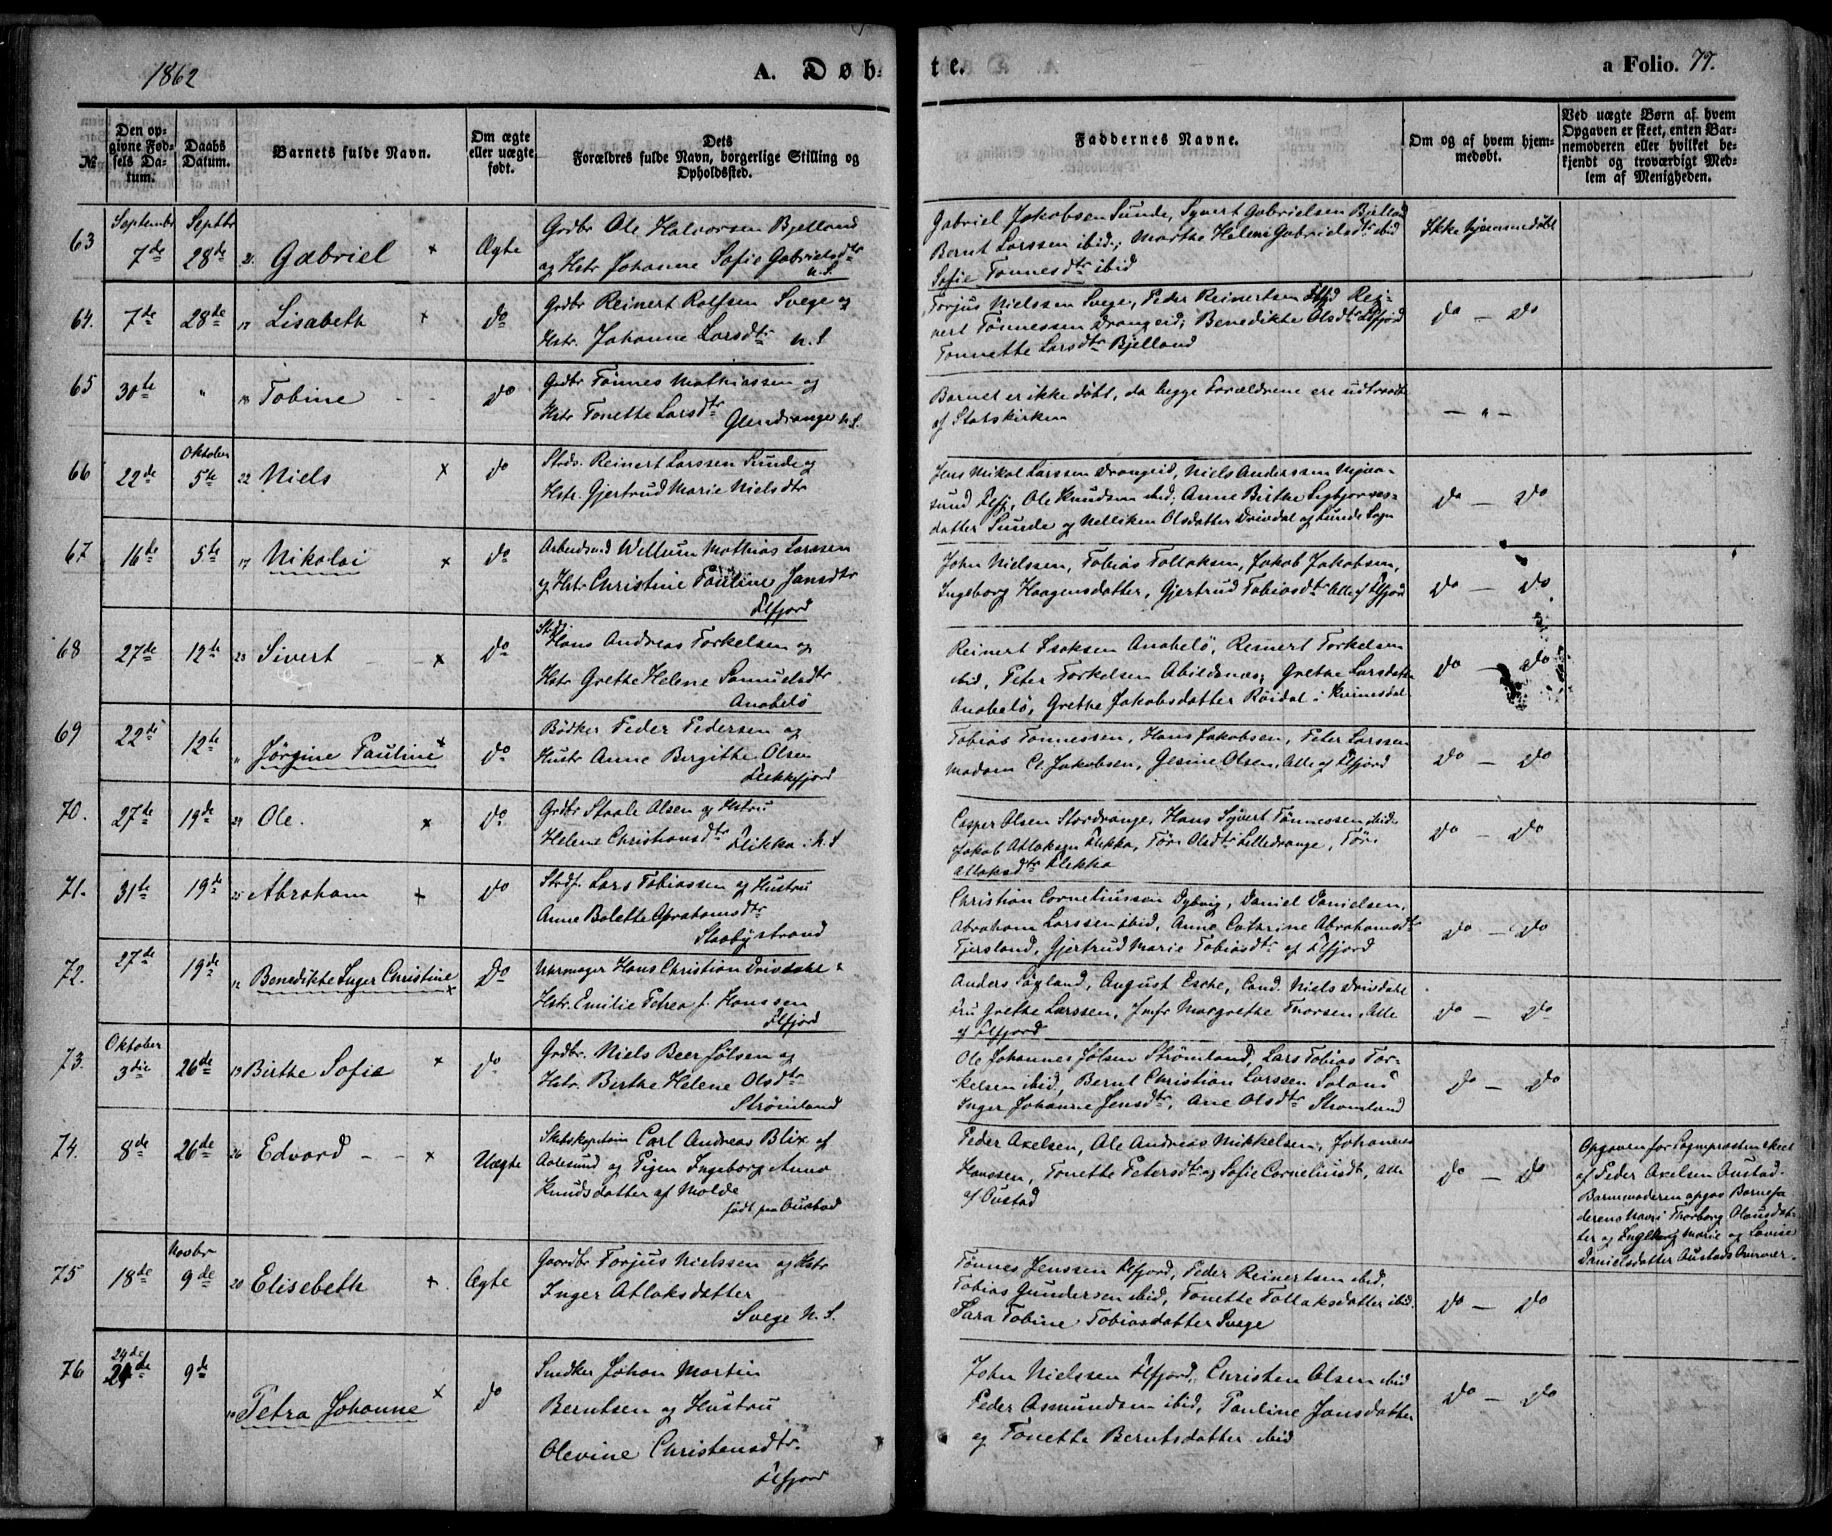 1862
A. Døb-
te.
a Folio. 77.
№
Den op-
givne Fød-
sels Da-
tum.
Daabs
Datum.
Barnets fulde Navn.
Om ægte
eller uægte
født.
Dets
Forældres fulde Navn, borgerlige Stilling og
Opholdssted.
Faddernes Navne.
Om og af hvem hjem-
medøbt.
Ved uægte Børn af hvem
Opgaven er skeet, enten Bar-
nemoderen eller hvilket be-
kjendt og troværdigt Med-
lem af Menigheden.
63
September
7de
Septbr
28de
Gabriel
Ægte
Grdbr Ole Halvorsen Bjelland
og Hstr Johanne Sofie Gabrielsdtr
N.S.
Gabriel Jakobsen Sunde, Syvert Gabrielsen Bjelland
Bernt Larssen ibid; Marthe Helene Gabrielsdtr ibid
Sofie Tønnesdtr ibid
Ikke hjemmedøbt
64.
7de
28de
Lisabeth
do
Grdbr Reinert Rolfsen Svege og
Hstr. Johanne Larsdtr N.S
Torjus Nielssen Svege, Peder Reinertsen Rei-
nert Tønnessen Drangeid; Benedikte Olsdtr Flfjord
Tonnette Larsdtr Bjelland
do — do
65
30te
"
Tobine
do
Grdbr Tønnes Mathiassen og
Hstr Tonette Larsdtr
Glendrange N.S.
Barnet er ikke døbt, da begge Forældrene ere udtraadte
af Statskirken
— " —
66
22de
Oktober
5te
22 Niels
do
Strds. Reinert Larssen Sunde og
Hstr. Gjertrud Marie Nielsdtr
Jens Mikal Larssen Drangeid, Niels Anderssen
sund Flfj, Ole Knudsen ibid; Anne Birthe Sigbjørns-
datter Sunde og Nelliken Olsdatter Drivdal af Lunde Sogn
do — do
67
16de
5te
17 Nikolai
do
Arbeidsmd Wellum Mathias Larssen
og Hstr Christine Pauline Jansdtr
Flfjord
John Nielssen, Tobias Tollaksen, Jakob Jakobsen,
Ingeborg Haagensdatter, Gjertrud Tobiasdtr Alle af Flfjord
do — do
68
27de
12te
23 Sivert
do
Strds.
Hans Andreas Torkelsen og
Hstr Grethe Helene Samuelsdtr
Anabelø
Reinert Isaksen Anabelø, Reinert Torkelsen
ibid, Peter Torkelsen Abildsnes; Grethe Larsdatter
Anabelø, Grethe Jakobsdatter Røidal i Kvinesdal
do — do
69
22de
12te
" Jørgine Pauline
do
Bødker Peder Pedersen og
Hustr Anne Birgithe Olsen
Flekkefjord
Tobias Tønnessen, Hans Jakobsen, Peter Larssen
Madam Cl. Jakobsen, Gesine Olsen, Alle af Flfjord
do — do
70.
27de
19de
24 Ole.
do
Grdbr Staale Olsen og Hstru
Helene Christiansdtr Flikka N.S
Casper Olsen Stordrange, Hans Syvert Tønnessen ibid
Jakob Atlaksen Flikka, Tøri Olsdtr Lilledrange, Tøri
Atlaksdtr Flikka
do — do
71.
31te
19de
25 Abraham
do
Strdf. Lars Tobiassen og Hustru
Anne Bolette Abrahamsdtr
Staabystrand
Christian Corneliussen Dybvig, Daniel Danielsen,
Abraham Larssen ibid, Anne Cathrine Abrahamsdtr
Tjersland, Gjertrud Marie Tobiasdtr af Flfjord
do — do
72.
27de
19de
Benedikte Inger Christine
Do
Uhrmager Hans Christian Drivdahl &
Hstr. Emilie Petrea f. Hanssen
Flfjord
Anders Søyland, August Esche, Cand. Niels Drivdahl
Fru Grethe Larssen, Jmfr Margrethe Thorsen, Alle
af Flfjord
do — do
73.
Oktober
3die
26de
19 Birthe Sofie
do
Grdbr. Niels Beer Jølsen og
Hstr. Birthe Helene Olsdtr
Strømland
Ole Johannes Jølsen Strømland, Lars Tobias Tor-
kelsen ibid, Bernt Christian Larssen Soland
Inger Johanne Jensdtr, Ane Olsdtr Strømland
do — do
74.
8de
26de
26 Edvard
Uægte
Skibskaptein Carl Andreas Blix af
Aalesund og Pigen Ingeborg Anna
Knudsdatter af Molde
født paa Austad
Peder Axelsen, Ole Andreas Mikkelsen, Johannes
Hanssen, Tonette Petersdtr og Sofie Corneliusdtr, Alle
af Austad
do — do
Opgaven for Sogneprosten skeet
af Peder Axelsen Austad.
Barnemoderen opgav Barnefa-
derens Navn i Thorborg Olausdat-
ter og Ingeborg Marie og Lovise
Danielsdatter Austads Nærvær.
75
18de
Novbr
9de
20 Elisebeth
Ægte
Gaardbr Torjus Nielssen og Hstr
Inger Atlaksdatter
Svege N.S.
Tønnes Jenssen Flfjord, Peder Reinertsen ibid,
Tobias Gundersen ibid, Tonette Tollaksdatter ibid.
Sara Tobine Tobiasdatter Svege
do — do
76
24de
24de
9de
Petra Johanne
do
Snedker Johan Martin
Berntsen og Hustru
Olevine Christensdtr.
Flfjord
John Nielssen Flfjord, Christen Olsen ibid
Peder Asmundsen ibid, Pauline Jansdatter
og Tonette Berntsdatter ibid
do — do